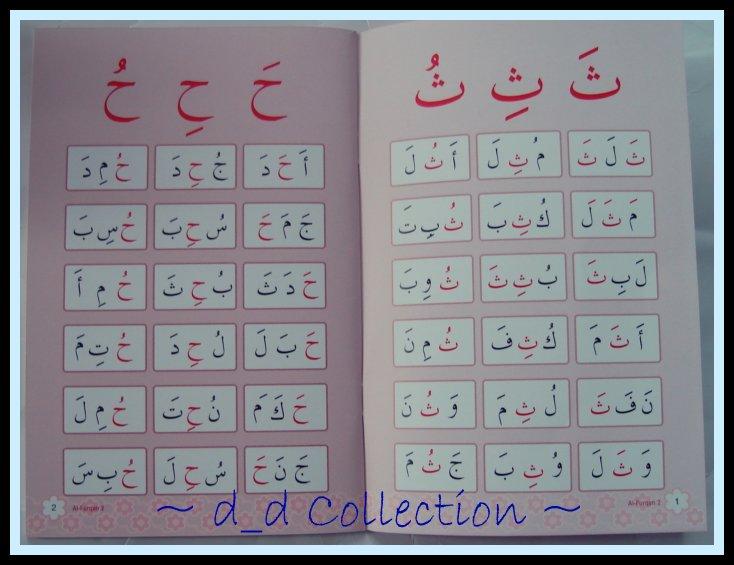 ثَ ثِ ثُ
ثَ لَ ثَ مُ ثِ لَ أَ ثُ لَ
مَ ثَ لَ كُ ثِ بَ ثُ بِ تَ
لَ بِ ثَ بُ ثِ ثَ ثُ وِ بَ
أَ ثَ مَ كُ ثِ فَ ثُ مِ نَ
نَ فَ ثَ لُ ثِ مَ وَ ثُ نَ
وَ ثَ لَ وُ ثِ بَ جَ ثُ مَ
Al-Furqan 2 1
حَ حِ حُ
أَ حَ دَ جُ حِ دَ حُ مِ دَ
جَ مَ حَ سُ حِ بَ حُ سِ بَ
حَ دَ ثَ بُ حِ ثَ حُ مِ أَ
حَ بَ لَ لُ حِ دَ حُ تِ مَ
حَ كَ مَ نُ حِ تَ حُ مِ لَ
جَ نَ حَ سُ حِ لَ حُ بِ سَ
2 Al-Furqan 2
~ d_d Collection ~